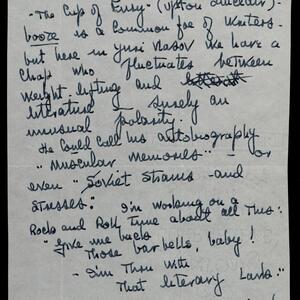 "The Cup of Fury" (Upton Sinclair) -
booze is a common foe of writers -
but here in Yuri Vlasov we have a
chap who fluctuates between
weight-lifting and
literature surely an
unusual polarity.
He could call his autobiography
"Muscular Memories" - or
even "Soviet Strains and
Stresses". I'm working on a
Rock and Roll tune about all this:
"Give me back
those bar bells, baby!
- I'm Thru With
That literary Lark."